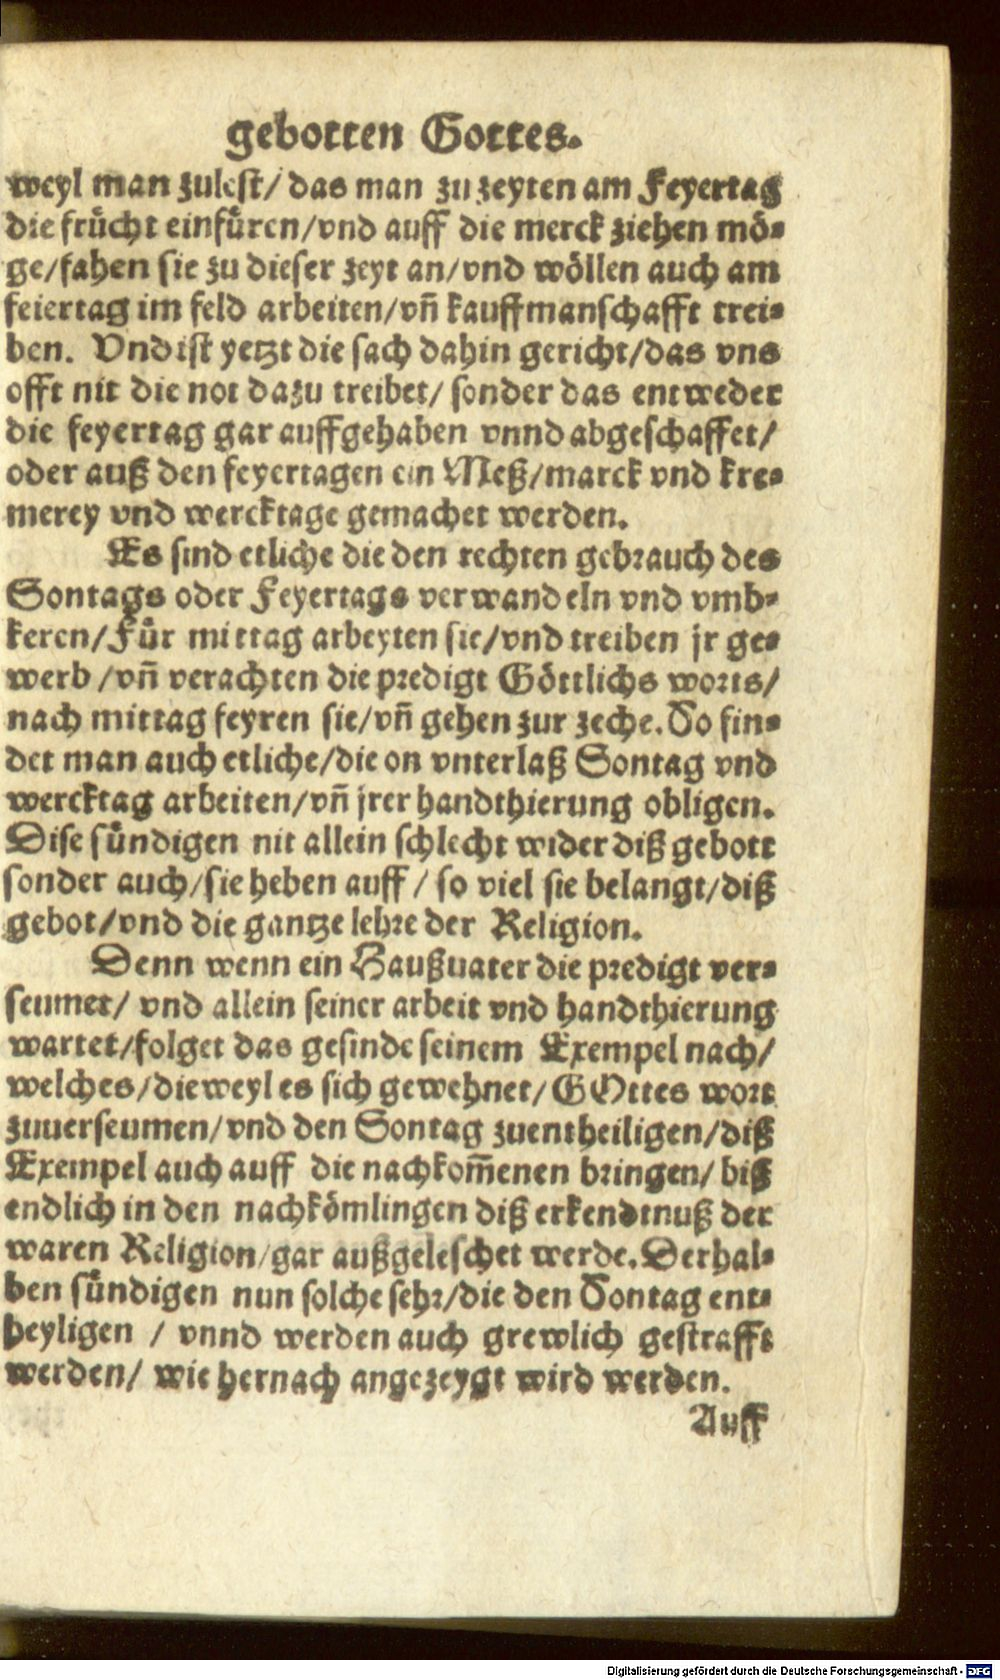 gebotten Gottes.
weyl man zulest/ das man zu zeyten am Feyertag
die frücht einfüren/vnd auff die merck ziehen mö-
ge/fahen sie zu dieser zeyt an/vnd wöllen auch am
feiertag im feld arbeiten/vñ kauffmanschafft trei-
ben. Vnd ist yetzt die sach dahin gericht/das vns
offt nit die not dazu treibet/ sonder das entweder
die feyertag gar auffgehaben vnnd abgeschaffet/
oder auß den feyertagen ein Meß/marck vnd kre-
merey vnd wercktage gemachet werden.
Es sind etliche die den rechten gebrauch des
Sontags oder Feyertags verwandeln vnd vmb-
keren/Für mittag arbeyten sie/vnd treiben jr ge-
werb /vñ verachten die predigt Göttlichs worts/
nach mittag feyren sie/vñ gehen zur zeche. So fin-
det man auch etliche/die on vnterlaß Sontag vnd
wercktag arbeiten/vñ jrer handthierung obligen.
Dise sündigen nit allein schlecht wider diß gebott
sonder auch/sie heben auff / so viel sie belangt/diß
gebot/vnd die gantze lehre der Religion.
Denn wenn ein Haußuater die predigt ver-
seumet/ vnd allein seiner arbeit vnd handthierung
wartet/folget das gesinde seinem Exempel nach/
welches/dieweyl es sich gewehnet/ GOttes wort
zuuerseumen/vnd den Sontag zuentheiligen/diß
Exempel auch auff die nachkom̃enen bringen/ biß
endlich in den nachkömlingen diß erkendtnuß der
waren Religion/gar außgeleschet werde. Derhal-
ben sündigen nun solche sehr/die den Sontag ent-
heyligen / vnnd werden auch grewlich gestrafft
werden/ wie hernach angezeygt wird werden.
Auff
Digitalisierung gefördert durch die Deutsche Forschungsgemeinschaft - DFG